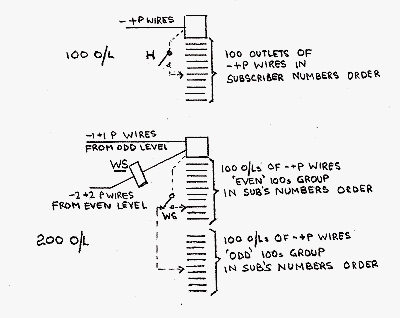 -+P WIRES
100 O/L
H
100 OUTLETS OF
-+P WIRES IN
SUBSCRIBER NUMBERS ORDER
-1+1 P WIRES
FROM ODD LEVEL
WS
-2+2 P WIRES
FROM EVEN LEVEL
WS
100 O/Ls OF -+P WIRES
'EVEN' 100s GROUP
IN SUB'S NUMBERS ORDER
200 O/L
100 O/Ls OF -+P WIRES
'ODD' 100s GROUP
IN SUB'S NUMBERS ORDER